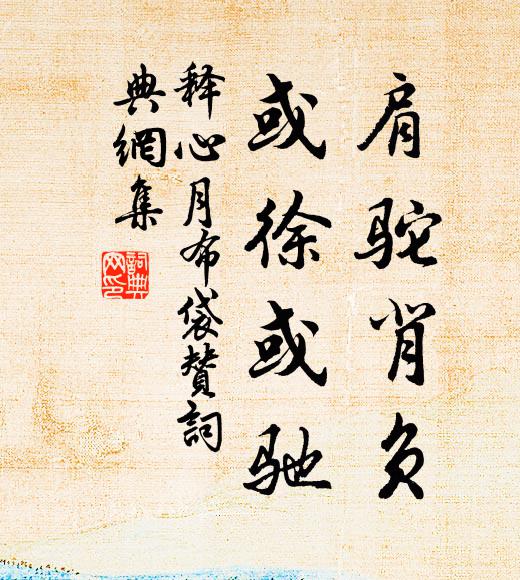 肩驼背负
或徐或驰
释心月布袋赞词
典網集
詞典
网印